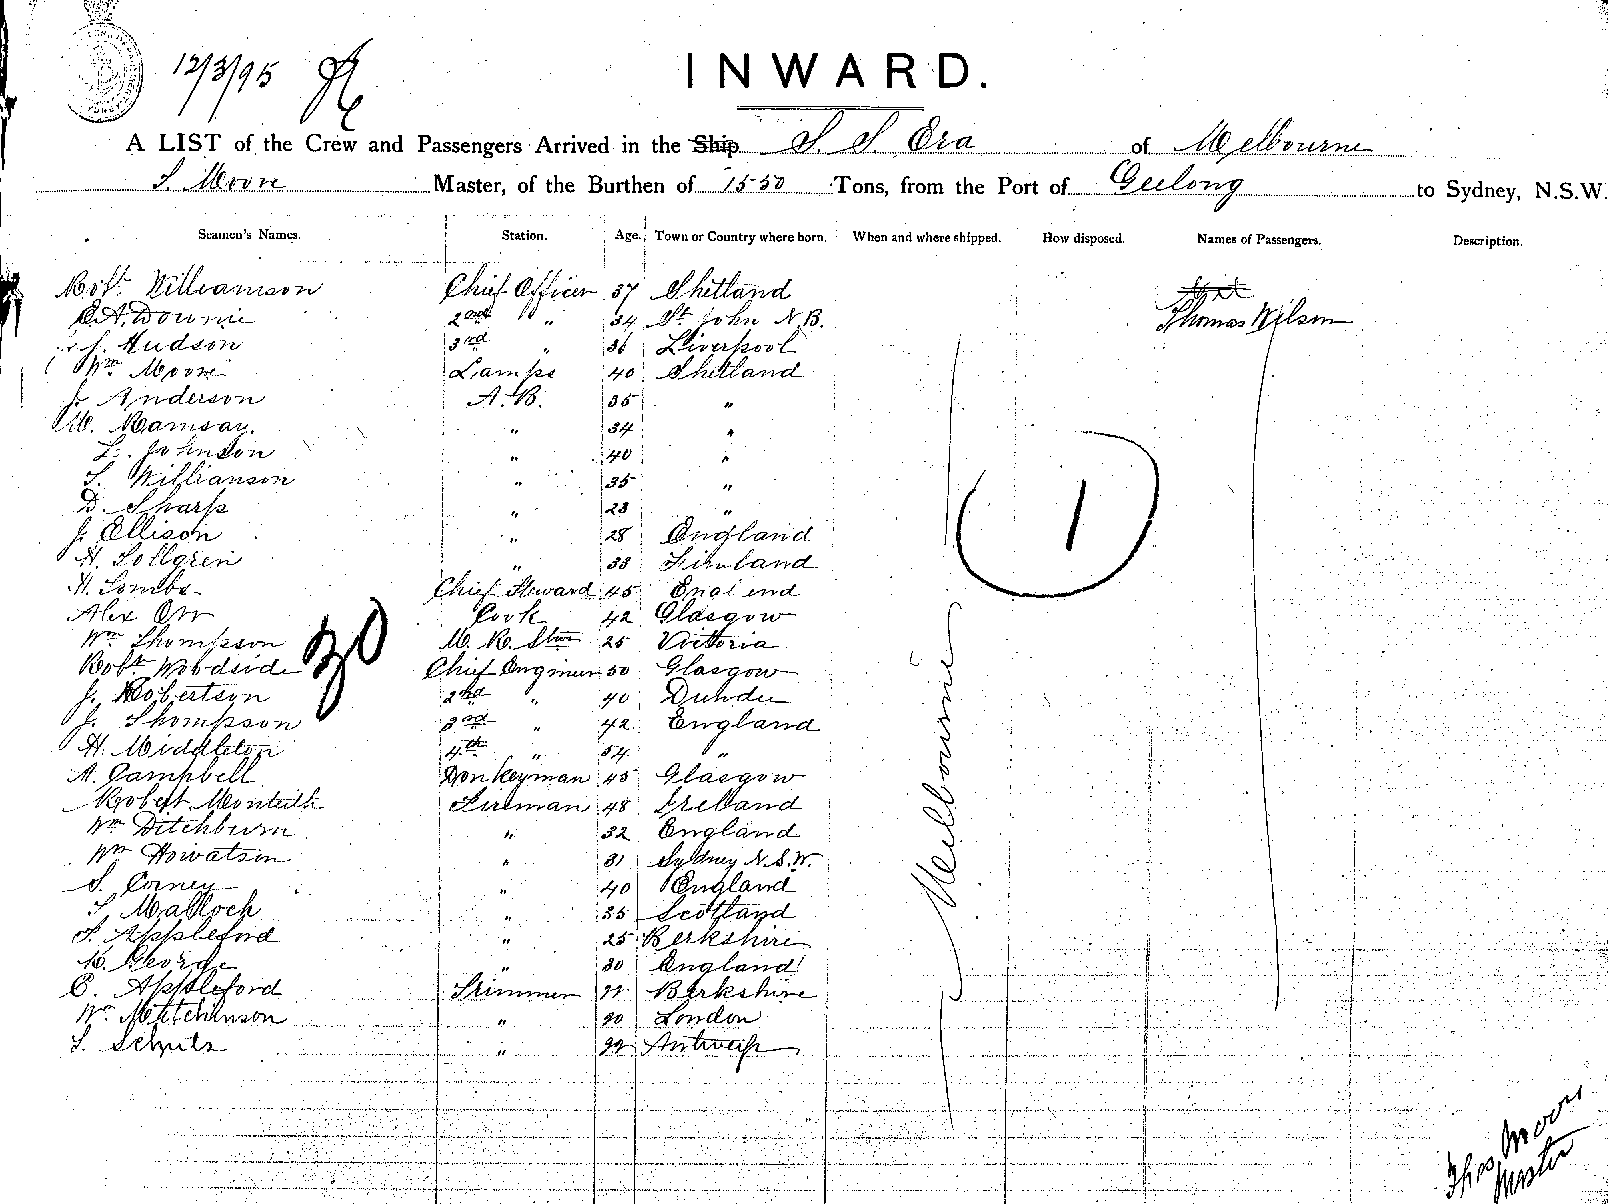 12/3/95
INWARD.
A LIST of the Crew and Passengers Arrived in the Ship S. S. Era of Melbourne
T. Moore Master, of the Burthen of 1550 Tons, from the Port of Geelong to Sydney, N.S.W.
Seamen's Names. Station. Age. Town or Country where born. When and where shipped. How disposed. Names of Passengers. Description.
Robt. Williamson Chief Officer 37 Shetland
C.A. Downie 2nd " 34 St. John N.B. Thomas Wilson
J. Hudson 3rd " 36 Liverpool
Wm Moore Lamps 40 Shetland
J. Anderson A.B. 35 "
W. Ramsay. " 34 "
L. Johnson " 40 "
T. Williamson " 35 "
D. Sharp " 23 "
J. Ellison " 28 England
H. Sollgren " 33 Finland
H. Combs Chief Steward 45 England
Alex Orr Cook 42 Glasgow
Wm Thompson M. R. Stwd 25 Victoria
Robt Woodside Chief Engineer 50 Glasgow
J. Robertson 2nd " 40 Dundee
J. Thompson 3rd " 42 England
H. Middleton 4th " 54 "
A. Campbell Donkeyman 45 Glasgow
Robert Monteith Fireman 48 Ireland
Wm Ditchburn " 32 England
Wm Howatson " 31 Sydney N.S.W.
S. Corney " 40 England
T. Malloch " 35 Scotland
F. Appleford " 25 Berkshire
George " 30 England
C. Appleford Trimmer 22 Berkshire
Wm Mitchinson " 20 London
T. Schultz " 22 Antwerp
30
1
Melbourne
Thos Moore
Master